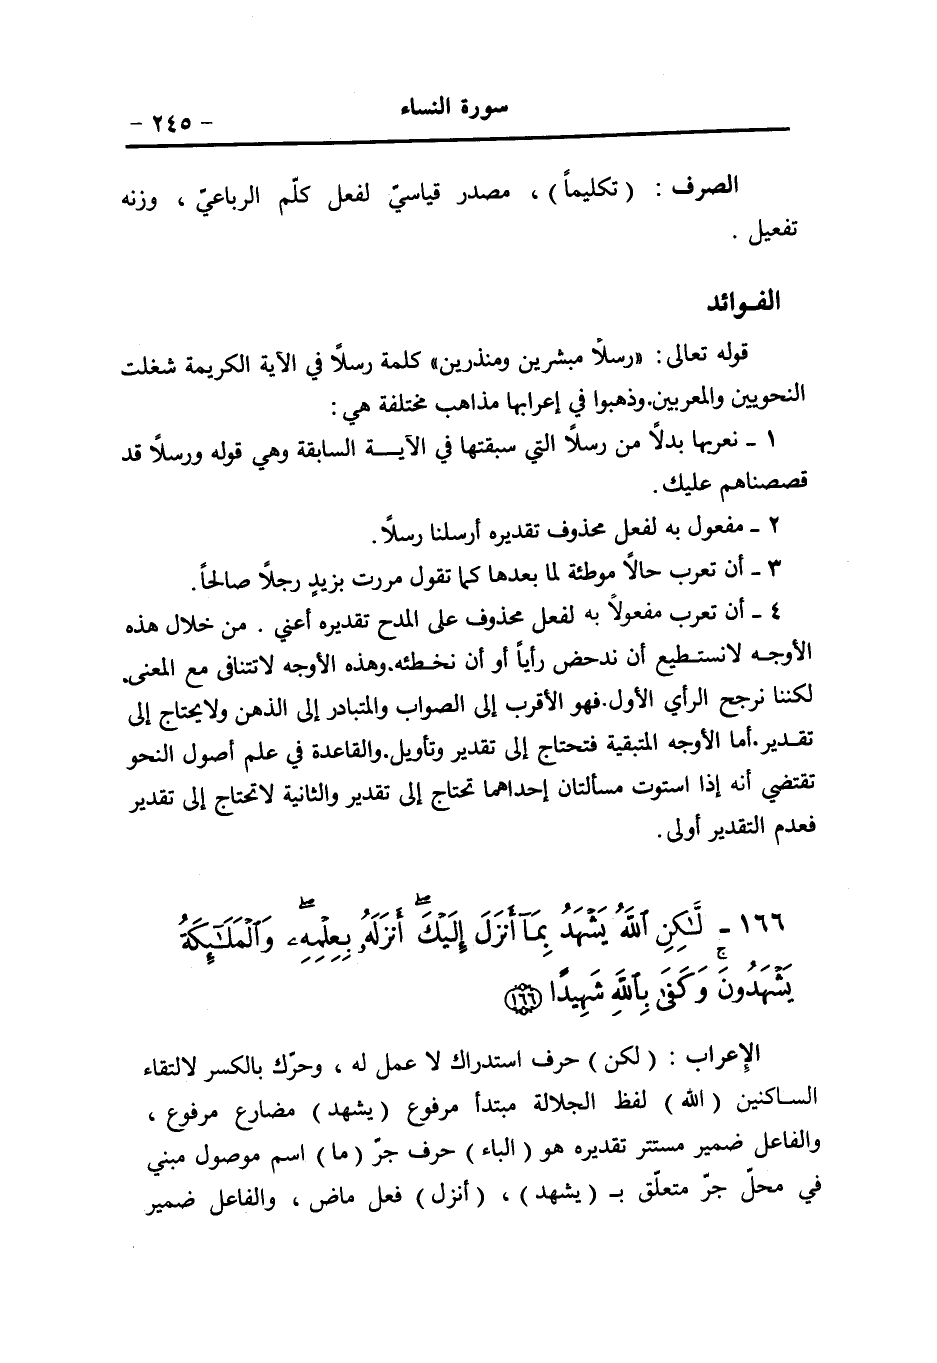 سورة النساء
- ٢٤٥ -
الصرف : ( تكليماً ) ، مصدر قياسيّ لفعل كلّم الرباعيّ ، وزنه
تفعيل .
الفـوائد
قوله تعالى: «رسلًا مبشرين ومنذرين» كلمة رسلًا في الآية الكريمة شغلت
النحويين والمعربين.وذهبوا في إعرابها مذاهب مختلفة هي:
١ ـ نعربها بدلًا من رسلًا التي سبقتها في الآيـــة السابقة وهي قوله ورسلًا قد
قصصناهم عليك.
٢ ـ مفعول به لفعل محذوف تقديره أرسلنا رسلًا.
٣ ـ أن تعرب حالًا موطئة لما بعدها كما تقول مررت بزيدٍ رجلًا صالحاً.
٤ ـ أن تعرب مفعولًا به لفعل محذوف على المدح تقديره أعني . من خلال هذه
الأوجـه لانستـطيع أن ندحض رأياً أو أن نخـطئه.وهذه الأوجه لاتتنافى مع المعنى.
لكننا نرجح الرأي الأول.فهو الأقرب إلى الصواب والمتبادر إلى الذهن ولايحتاج إلى
تقـدير.أما الأوجه المتبقية فتحتاج إلى تقدير وتأويل.والقاعدة في علم أصول النحو
تقتضي أنه إذا استوت مسألتان إحداهما تحتاج إلى تقدير والثانية لاتحتاج إلى تقدير
فعدم التقدير أولى.
١٦٦ ـ لَّٰكِنِ ٱللَّهُ يَشْهَدُ بِمَآ أَنزَلَ إِلَيْكَ ۖ أَنزَلَهُۥ بِعِلْمِهِۦ ۖ وَٱلْمَلَٰٓئِكَةُ
يَشْهَدُونَ ۚ وَكَفَىٰ بِٱللَّهِ شَهِيدًا ١٦٦
الإعراب : ( لكن ) حرف استدراك لا عمل له ، وحرّك بالكسر لالتقاء
الساكنين ( الله ) لفظ الجلالة مبتدأ مرفوع ( يشهد ) مضارع مرفوع ،
والفاعل ضمير مستتر تقديره هو ( الباء ) حرف جرّ ( ما ) اسم موصول مبني
في محلّ جرّ متعلّق بـ ( يشهد ) ، ( أنزل ) فعل ماض ، والفاعل ضمير